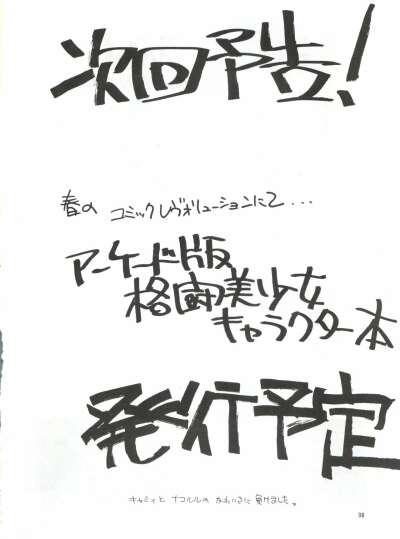 次回予告!
春の コミックレヴォリューションにて...
アーケード版
格闘美少女
キャラクター本
発行予定
キャミィと ナコルルの かわいさに 負けました。
38